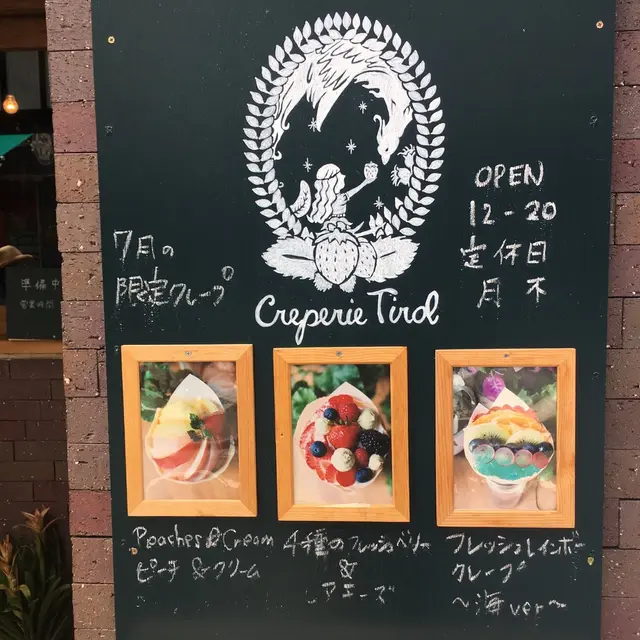 Creperie Tirol
7月の
限定クレープ
OPEN
12-20
定休日
月 不
準備中
営業時間
Peaches & Cream
ピーチ & クリーム
4種のフレッシュベリー
&
フレッシュレインボー
クレープ
〜海ver〜